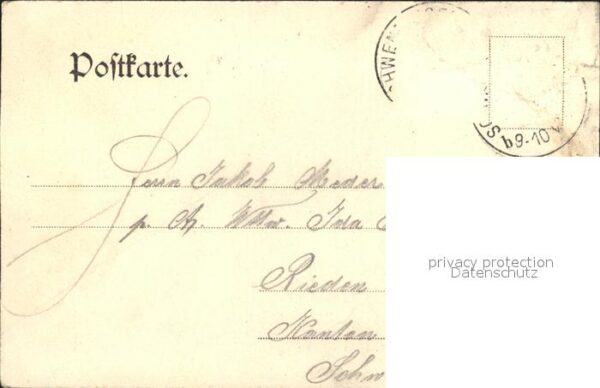 Postkarte.
SCHWEN
b9-10V
Herrn Jakob Meder
p. A. Wttw. Ida
Rieden
Kanton
Schw
privacy protection
Datenschutz